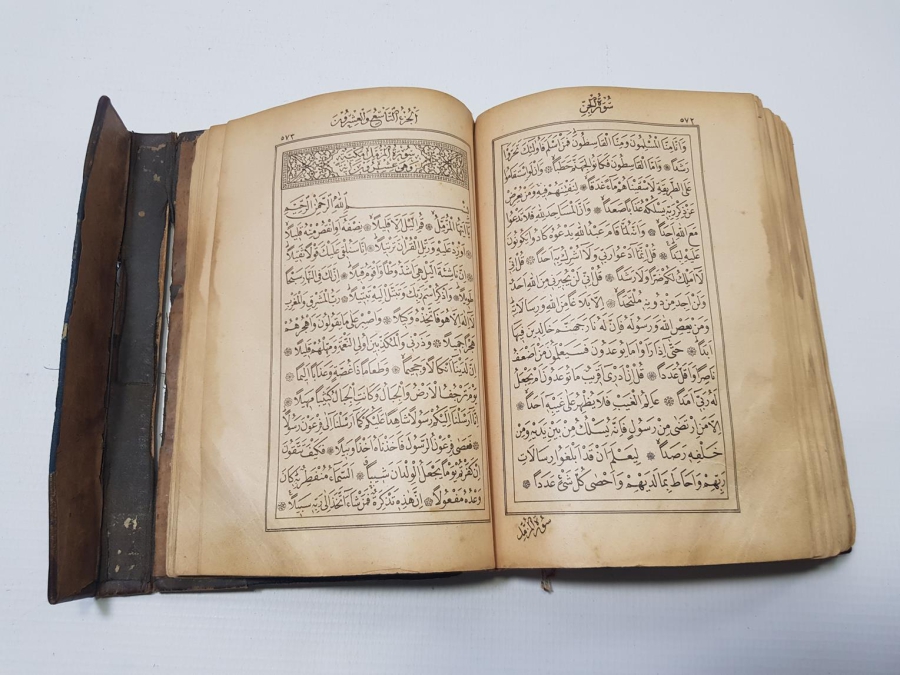 سُورَةُ الْجِنِّ
٥٧٢
وَاَنَّا مِنَّا الْمُسْلِمُونَ وَمِنَّا الْقَاسِطُونَ فَمَنْ اَسْلَمَ فَاُولٰئِكَ تَحَرَّوْا
رَشَدًا ❋ وَاَمَّا الْقَاسِطُونَ فَكَانُوا لِجَهَنَّمَ حَطَبًا ❋ وَاَنْ لَوِ اسْتَقَامُوا
عَلَى الطَّرِيقَةِ لَاَسْقَيْنَاهُمْ مَاءً غَدَقًا ❋ لِنَفْتِنَهُمْ فِيهِ وَمَنْ يُعْرِضْ
عَنْ ذِكْرِ رَبِّهِ يَسْلُكْهُ عَذَابًا صَعَدًا ❋ وَاَنَّ الْمَسَاجِدَ لِلّٰهِ فَلَا تَدْعُوا
مَعَ اللّٰهِ اَحَدًا ❋ وَاَنَّهُ لَمَّا قَامَ عَبْدُ اللّٰهِ يَدْعُوهُ كَادُوا يَكُونُونَ
عَلَيْهِ لِبَدًا ❋ قُلْ اِنَّمَا اَدْعُوا رَبِّي وَلَا اُشْرِكُ بِهِ اَحَدًا ❋ قُلْ اِنِّي
لَا اَمْلِكُ لَكُمْ ضَرًّا وَلَا رَشَدًا ❋ قُلْ اِنِّي لَنْ يُجِيرَنِي مِنَ اللّٰهِ اَحَدٌ
وَلَنْ اَجِدَ مِنْ دُونِهِ مُلْتَحَدًا ❋ اِلَّا بَلَاغًا مِنَ اللّٰهِ وَرِسَالَاتِهِ
وَمَنْ يَعْصِ اللّٰهَ وَرَسُولَهُ فَاِنَّ لَهُ نَارَ جَهَنَّمَ خَالِدِينَ فِيهَا
اَبَدًا ❋ حَتّٰى اِذَا رَاَوْا مَا يُوعَدُونَ فَسَيَعْلَمُونَ مَنْ اَضْعَفُ
نَاصِرًا وَاَقَلُّ عَدَدًا ❋ قُلْ اِنْ اَدْرِي اَقَرِيبٌ مَا تُوعَدُونَ اَمْ يَجْعَلُ
لَهُ رَبِّي اَمَدًا ❋ عَالِمُ الْغَيْبِ فَلَا يُظْهِرُ عَلٰى غَيْبِهِ اَحَدًا ❋
اِلَّا مَنِ ارْتَضٰى مِنْ رَسُولٍ فَاِنَّهُ يَسْلُكُ مِنْ بَيْنِ يَدَيْهِ وَمِنْ
خَلْفِهِ رَصَدًا ❋ لِيَعْلَمَ اَنْ قَدْ اَبْلَغُوا رِسَالَاتِ
رَبِّهِمْ وَاَحَاطَ بِمَا لَدَيْهِمْ وَاَحْصٰى كُلَّ شَيْءٍ عَدَدًا ❋
سُورَةُ الْمُزَّمِّلِ
اَلْجُزْءُ التَّاسِعُ وَالْعِشْرُونَ
٥٧٣
سُورَةُ الْمُزَّمِّلِ مَكِّيَّةٌ
بِسْمِ اللّٰهِ الرَّحْمٰنِ الرَّحِيمِ
يَا اَيُّهَا الْمُزَّمِّلُ ❋ قُمِ الَّيْلَ اِلَّا قَلِيلًا ❋ نِصْفَهُ اَوِ انْقُصْ مِنْهُ قَلِيلًا
❋ اَوْ زِدْ عَلَيْهِ وَرَتِّلِ الْقُرْاٰنَ تَرْتِيلًا ❋ اِنَّا سَنُلْقِي عَلَيْكَ قَوْلًا ثَقِيلًا
❋ اِنَّ نَاشِئَةَ الَّيْلِ هِيَ اَشَدُّ وَطْئًا وَاَقْوَمُ قِيلًا ❋ اِنَّ لَكَ فِي النَّهَارِ سَبْحًا
طَوِيلًا ❋ وَاذْكُرِ اسْمَ رَبِّكَ وَتَبَتَّلْ اِلَيْهِ تَبْتِيلًا ❋ رَبُّ الْمَشْرِقِ وَالْمَغْرِبِ
لَا اِلٰهَ اِلَّا هُوَ فَاتَّخِذْهُ وَكِيلًا ❋ وَاصْبِرْ عَلٰى مَا يَقُولُونَ وَاهْجُرْهُمْ
هَجْرًا جَمِيلًا ❋ وَذَرْنِي وَالْمُكَذِّبِينَ اُولِي النَّعْمَةِ وَمَهِّلْهُمْ قَلِيلًا ❋
اِنَّ لَدَيْنَا اَنْكَالًا وَجَحِيمًا ❋ وَطَعَامًا ذَا غُصَّةٍ وَعَذَابًا اَلِيمًا ❋
يَوْمَ تَرْجُفُ الْاَرْضُ وَالْجِبَالُ وَكَانَتِ الْجِبَالُ كَثِيبًا مَهِيلًا ❋
اِنَّا اَرْسَلْنَا اِلَيْكُمْ رَسُولًا شَاهِدًا عَلَيْكُمْ كَمَا اَرْسَلْنَا اِلٰى فِرْعَوْنَ رَسُولًا
❋ فَعَصٰى فِرْعَوْنُ الرَّسُولَ فَاَخَذْنَاهُ اَخْذًا وَبِيلًا ❋ فَكَيْفَ تَتَّقُونَ
اِنْ كَفَرْتُمْ يَوْمًا يَجْعَلُ الْوِلْدَانَ شِيبًا ❋ اَلسَّمَاءُ مُنْفَطِرٌ بِهِ كَانَ
وَعْدُهُ مَفْعُولًا ❋ اِنَّ هٰذِهِ تَذْكِرَةٌ فَمَنْ شَاءَ اتَّخَذَ اِلٰى رَبِّهِ سَبِيلًا ❋